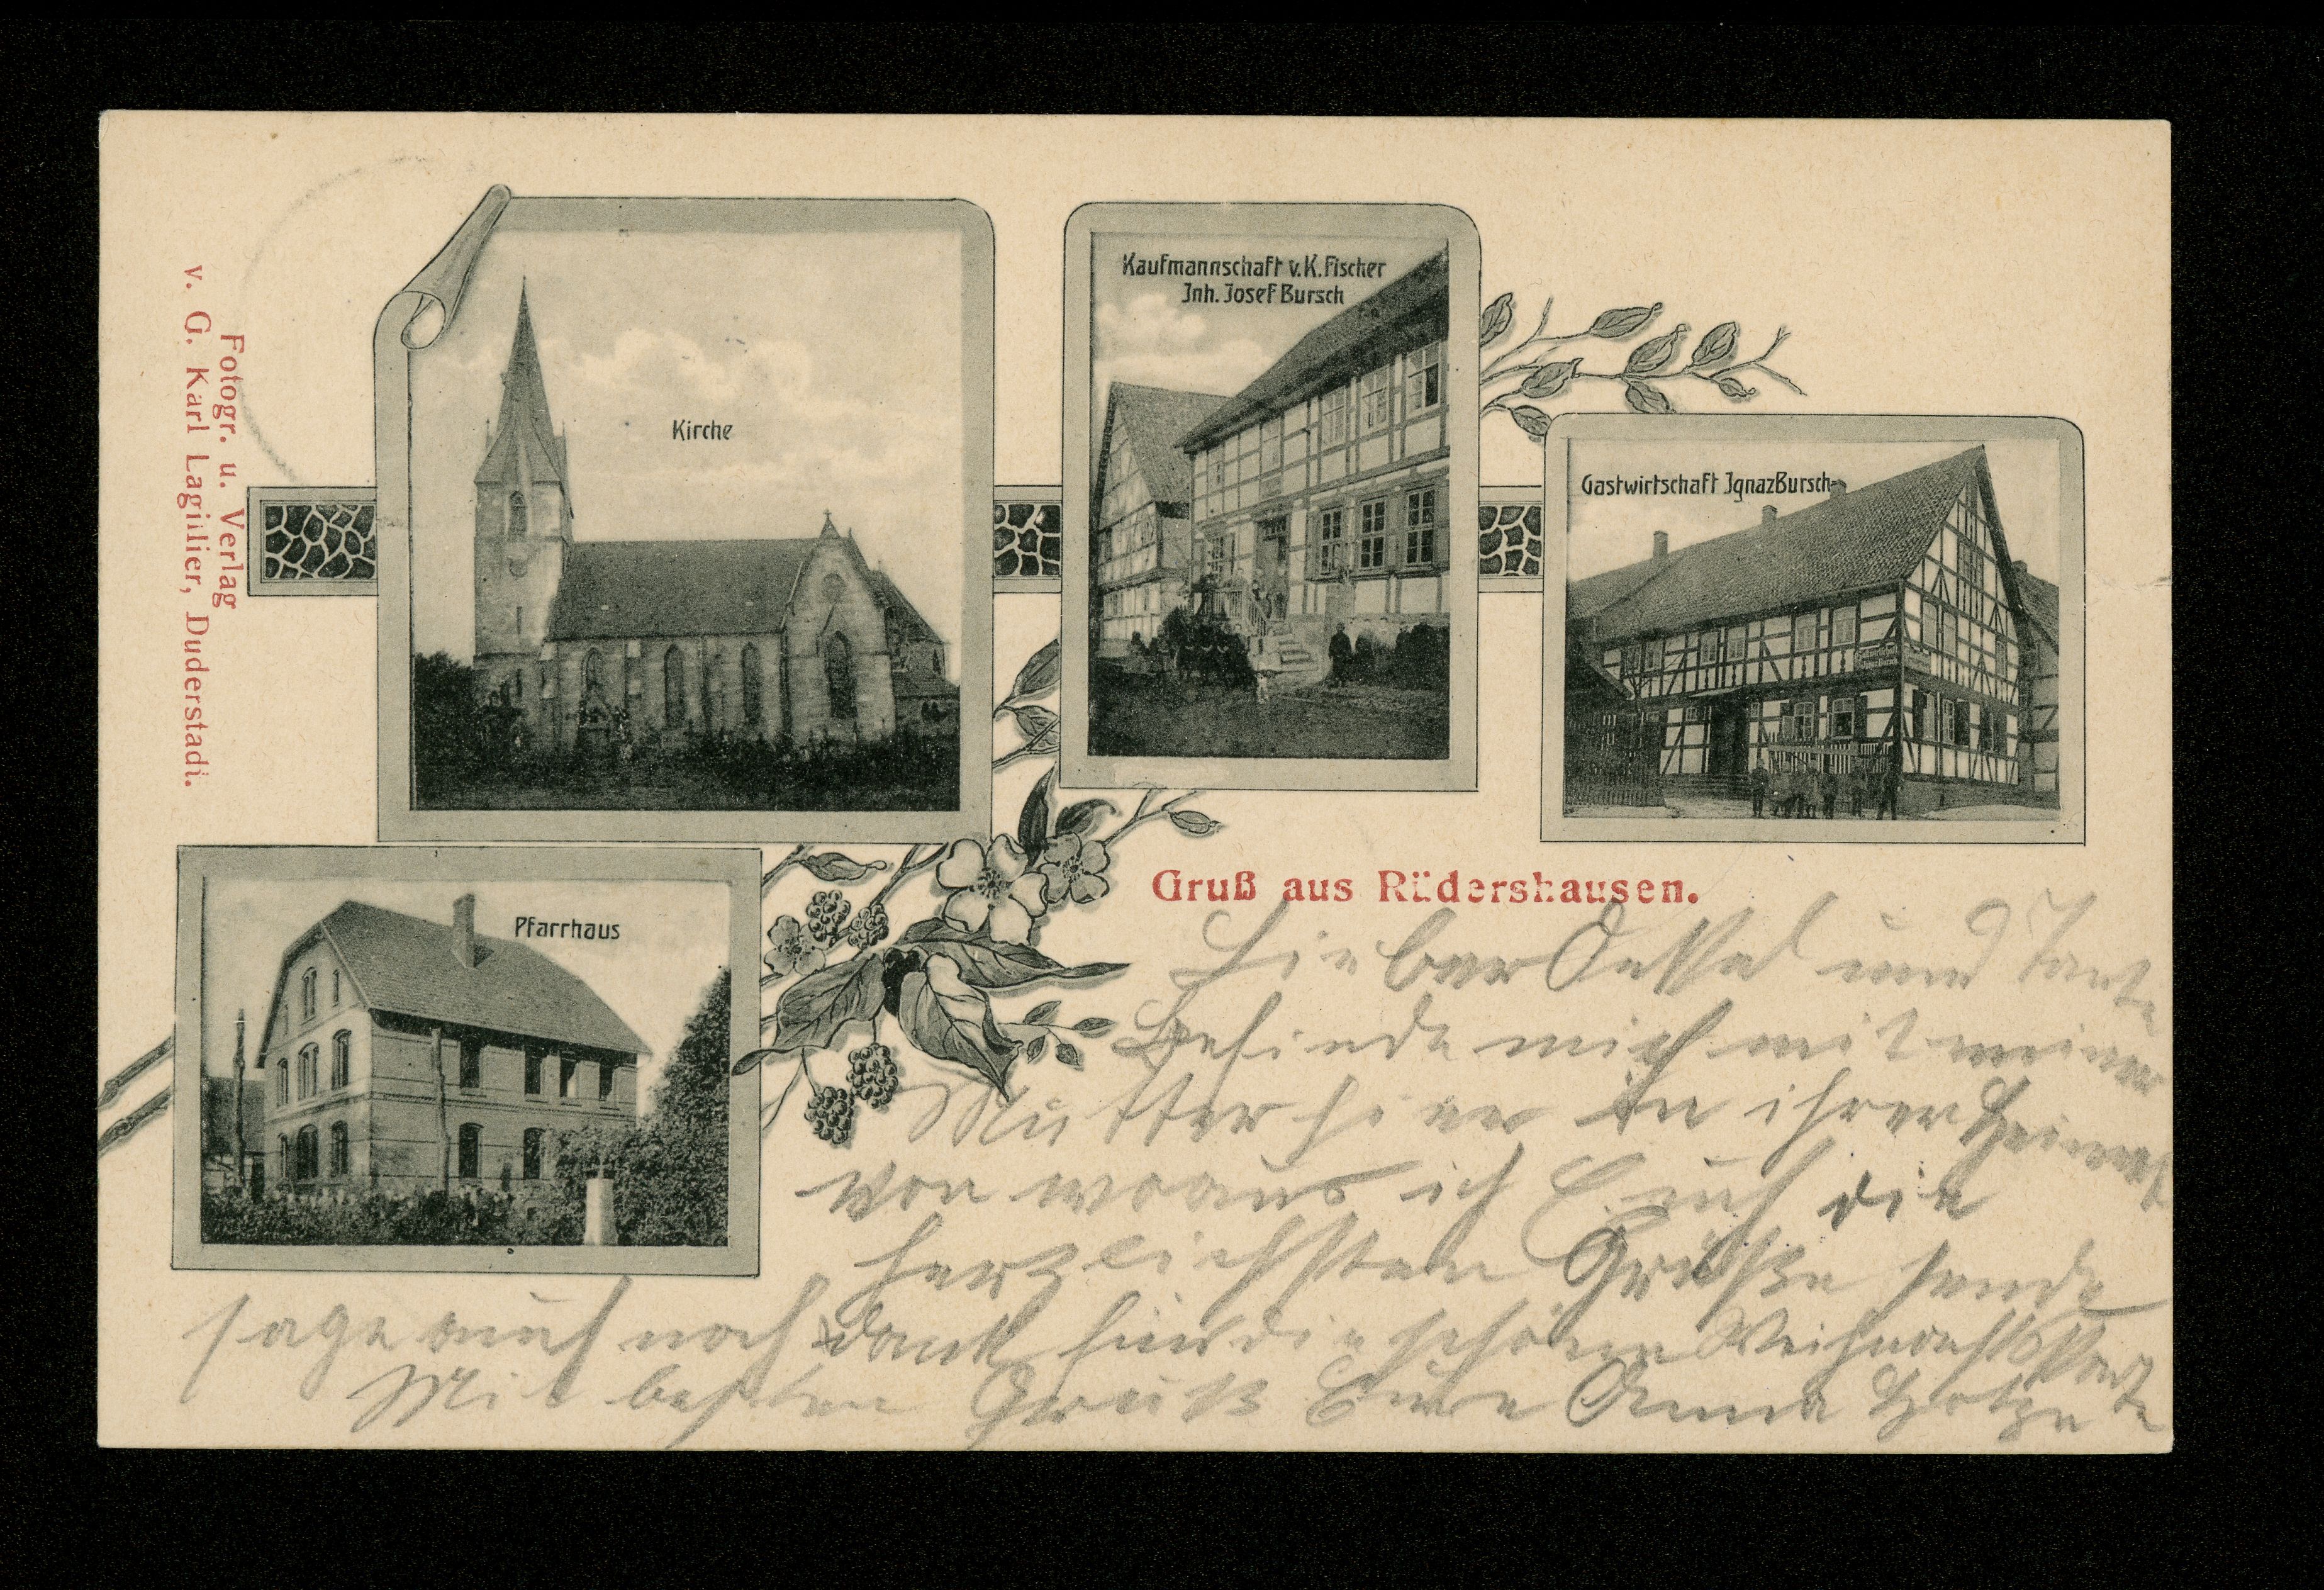 Fotogr. u. Verlag
v. G. Karl Lagillier, Duderstadt.
Kirche
Kaufmannschaft v. K. Fischer
Inh. Josef Bursch
Gastwirtschaft Ignaz Bursch
Gastwirtschaft
Pfarrhaus
Gruß aus Rüdershausen.
Lieber Onkel und Tante
Befinde mich mit meiner
Mutter hier in ihrer Heimat
von woaus ich Euch die
herzlichsten Grüße sende
sage auch noch dank für die schöne Weihnachtskarte
Mit besten Gruß Eure Anna Hotze